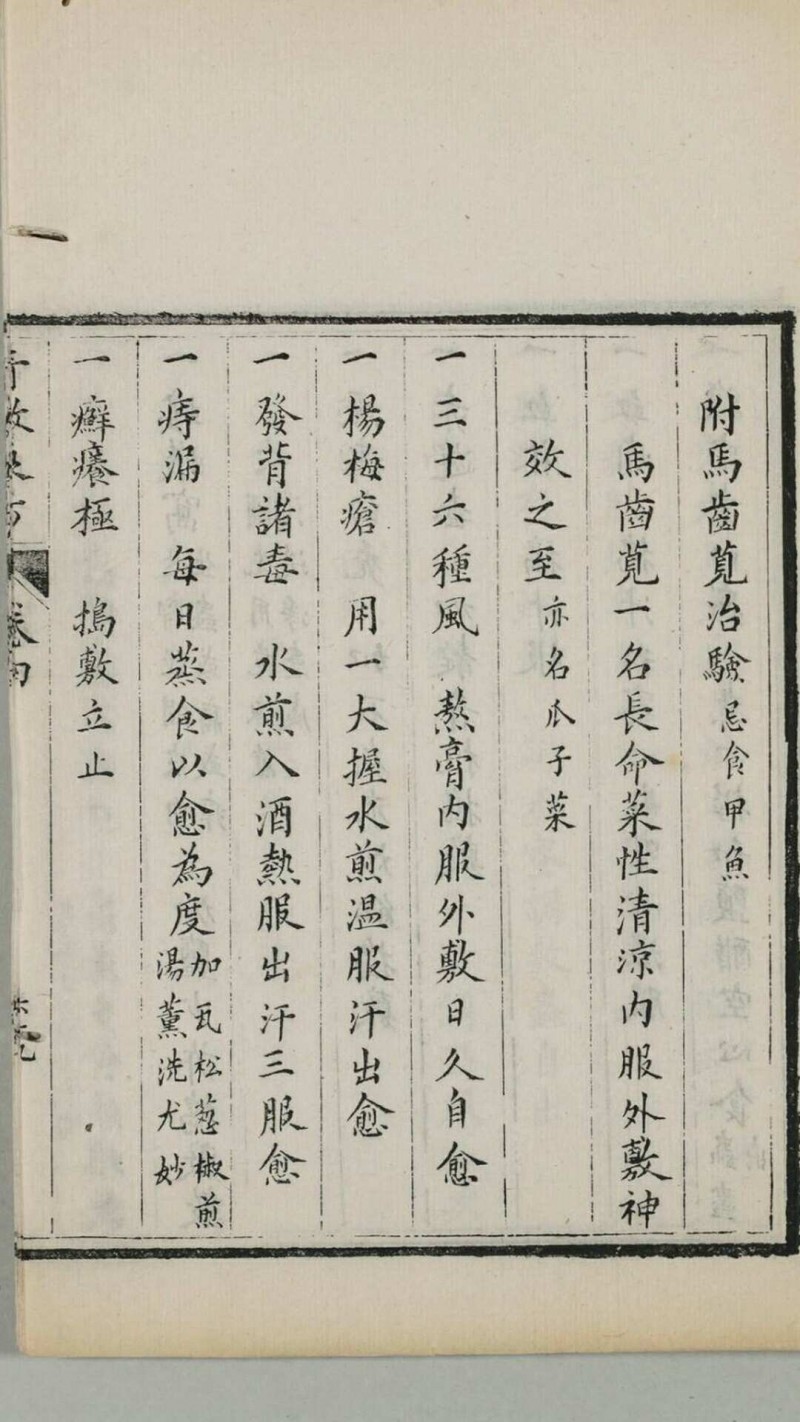 附馬齒莧治驗忌食甲魚
馬齒莧一名長命菜性清涼内服外敷神
效之至亦名瓜子菜
一三十六種風 熬膏内服外敷日久自愈
一楊梅瘡 用一大握水煎温服汗出愈
一發背諸毒 水煎入酒熱服出汗三服愈
一痔漏 每日蒸食以愈為度加瓦松葱椒煎湯薰洗尤妙
一癬癢極 搗敷立止